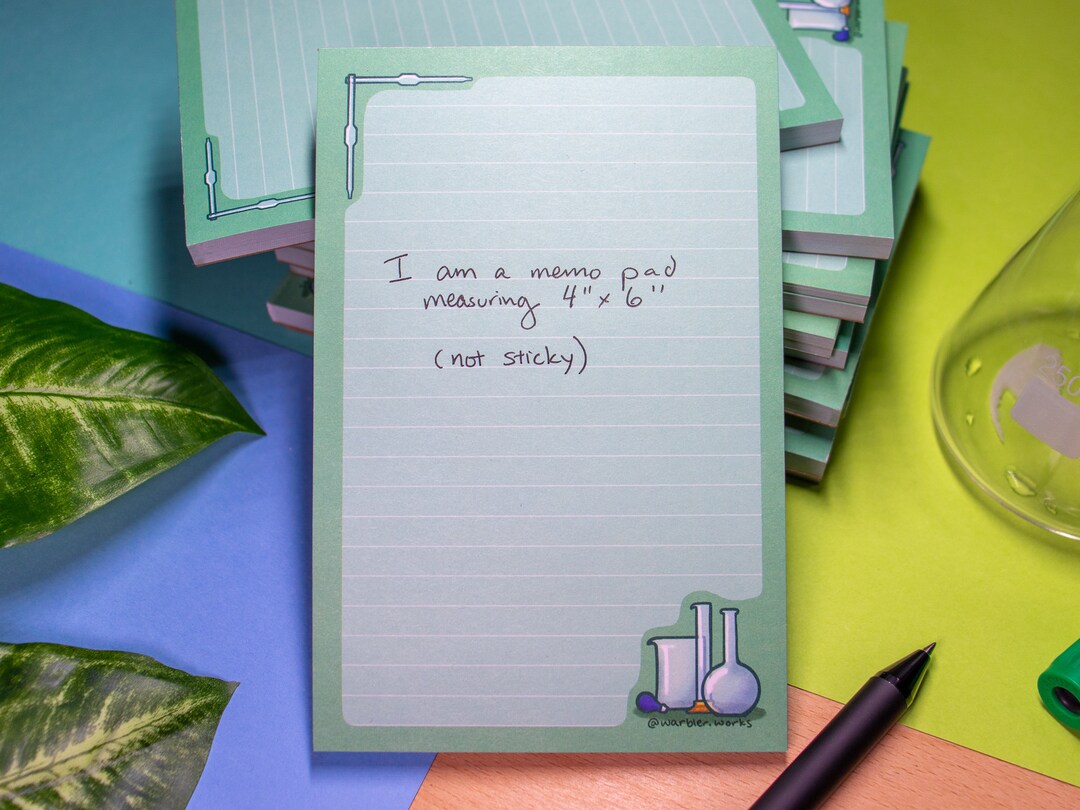 I am a memo pad
measuring 4" x 6"
(not sticky)
@warbler.works
250